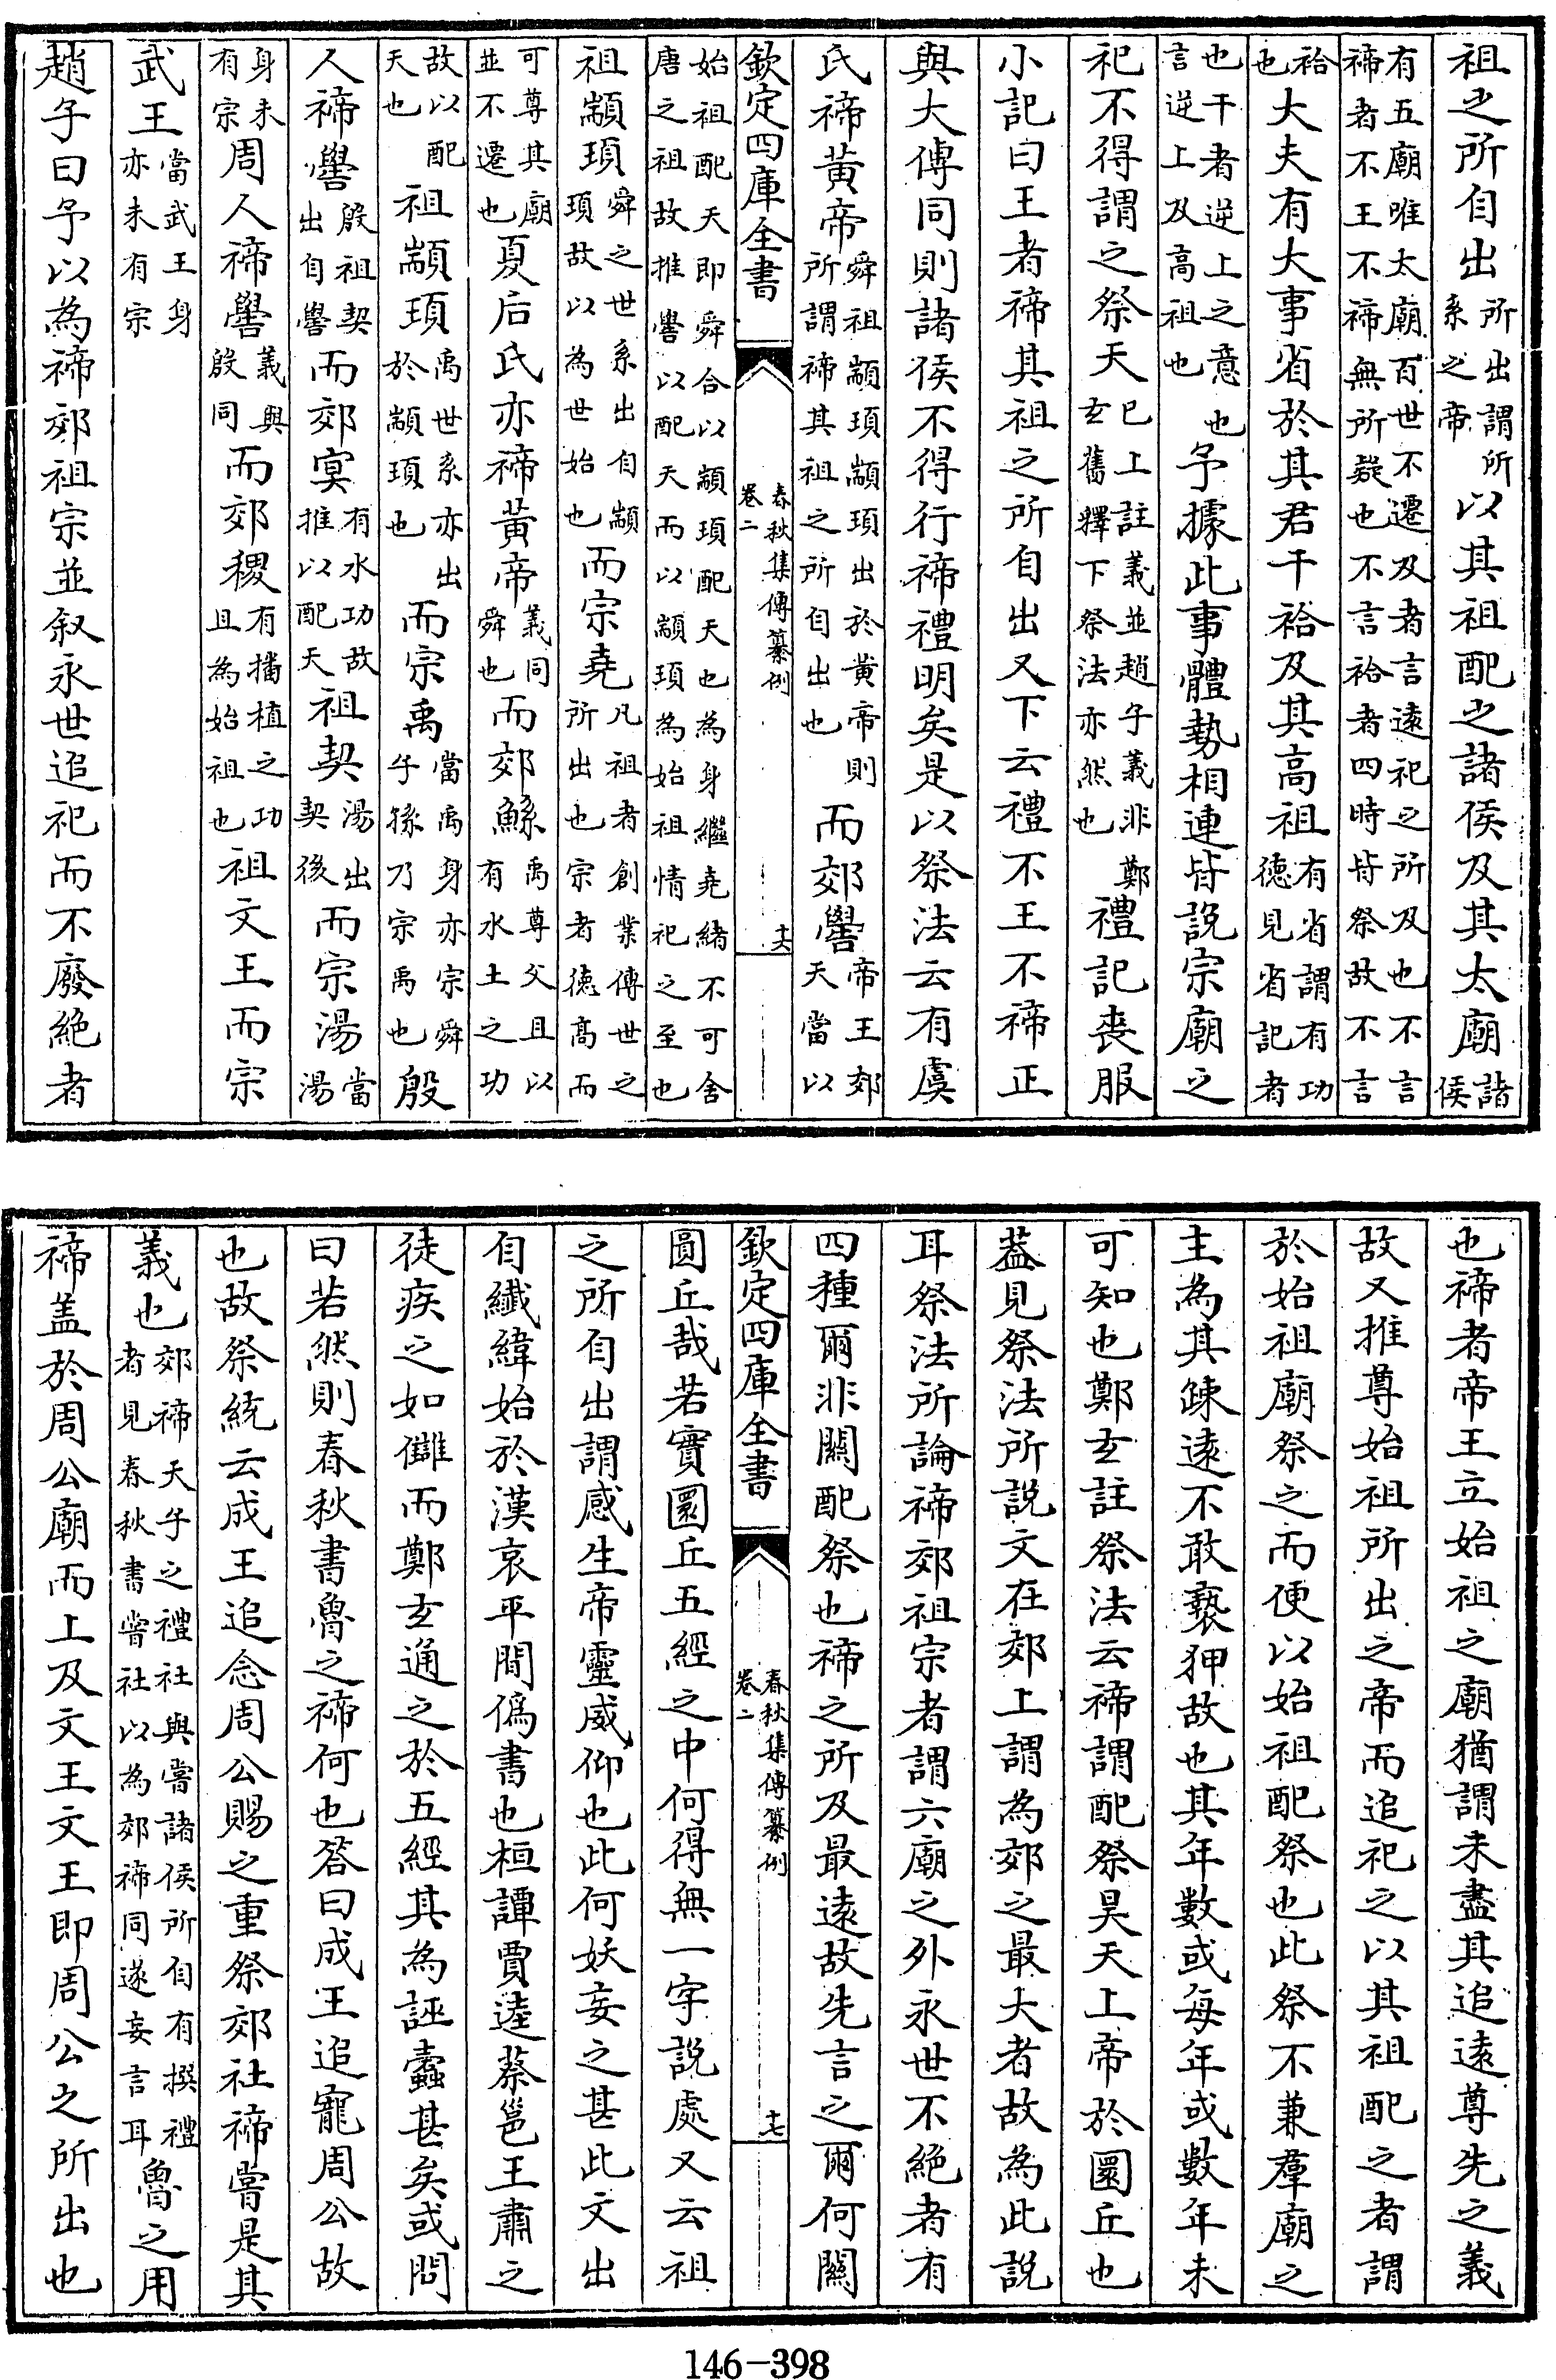 祖之所自出所出謂所系之帝以其祖配之諸侯及其太廟諸侯
有五廟唯太廟百世不遷及者言遠祀之所及也不言禘者不王不禘無所疑也不言祫者四時皆祭故不言
祫也大夫有大事省於其君干祫及其高祖有省謂有功德見省記者
也干者逆上之意也言逆上及高祖也予據此事體勢相連皆說宗廟之
祀不得謂之祭天已上註義並趙子義非鄭玄舊釋下祭法亦然也禮記喪服
小記曰王者禘其祖之所自出又下云禮不王不禘正
與大傳同則諸侯不得行禘禮明矣是以祭法云有虞
氏禘黃帝舜祖顓頊顓頊出於黃帝則所謂禘其祖之所自出也而郊嚳帝王郊天當以
欽定四庫全書
春秋集傳纂例
卷二
十六
始祖配天即舜合以顓頊配天也為身繼堯緒不可舍唐之祖故推嚳以配天而以顓頊為始祖情祀之至也
祖顓頊舜之世系出自顓頊故以為世始也而宗堯凡祖者創業傳世之所出也宗者德高而
可尊其廟並不遷也夏后氏亦禘黃帝義同舜也而郊鯀禹尊父且以有水土之功
故以配天也祖顓頊禹世系亦出於顓頊也而宗禹當禹身亦宗舜子孫乃宗禹也殷
人禘嚳殷祖契出自嚳而郊冥有水功故推以配天祖契湯出契後而宗湯當湯
身未有宗周人禘嚳義與殷同而郊稷有播植之功且為始祖也祖文王而宗
武王當武王身亦未有宗
趙子曰予以為禘郊祖宗並叙永世追祀而不廢絶者
也禘者帝王立始祖之廟猶謂未盡其追遠尊先之義
故又推尊始祖所出之帝而追祀之以其祖配之者謂
於始祖廟祭之而便以始祖配祭也此祭不兼羣廟之
主為其疎遠不敢褻狎故也其年數或每年或數年未
可知也鄭玄註祭法云禘謂配祭昊天上帝於圜丘也
葢見祭法所說文在郊上謂為郊之最大者故為此說
耳祭法所論禘郊祖宗者謂六廟之外永世不絶者有
四種爾非關配祭也禘之所及最遠故先言之爾何關
欽定四庫全書
春秋集傳纂例
卷二
十七
圓丘哉若實圜丘五經之中何得無一字說處又云祖
之所自出謂感生帝靈威仰也此何妖妄之甚此文出
自纖緯始於漢哀平間僞書也桓譚賈逵蔡邕王肅之
徒疾之如讎而鄭玄通之於五經其為誣蠹甚矣或問
曰若然則春秋書魯之禘何也答曰成王追寵周公故
也故祭統云成王追念周公賜之重祭郊社禘嘗是其
義也郊禘天子之禮社與嘗諸侯所自有撰禮者見春秋書嘗社以為郊禘同遂妄言耳魯之用
禘盖於周公廟而上及文王文王即周公之所出也
146-398